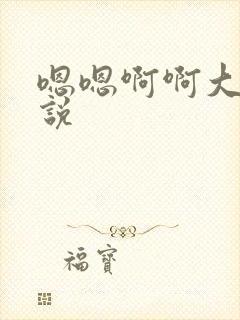 嗯嗯啊啊大
說
福寶